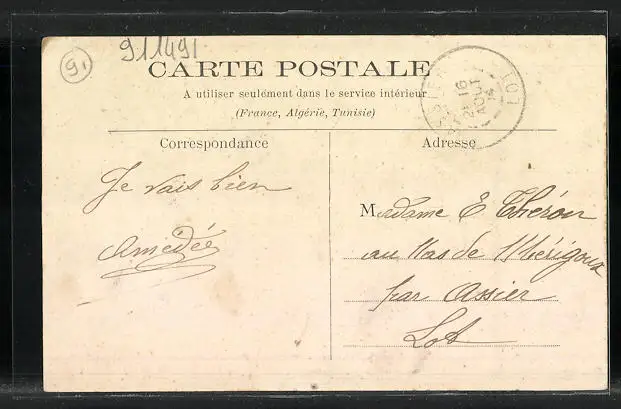 91
911491
CARTE POSTALE
A utiliser seulement dans le service intérieur
(France, Algérie, Tunisie)
LOT
16
AOUT
Correspondance
Adresse
Je vais bien
Amédée
Madame E Théron
au Mas de Mérigoux
par Assier
Lot